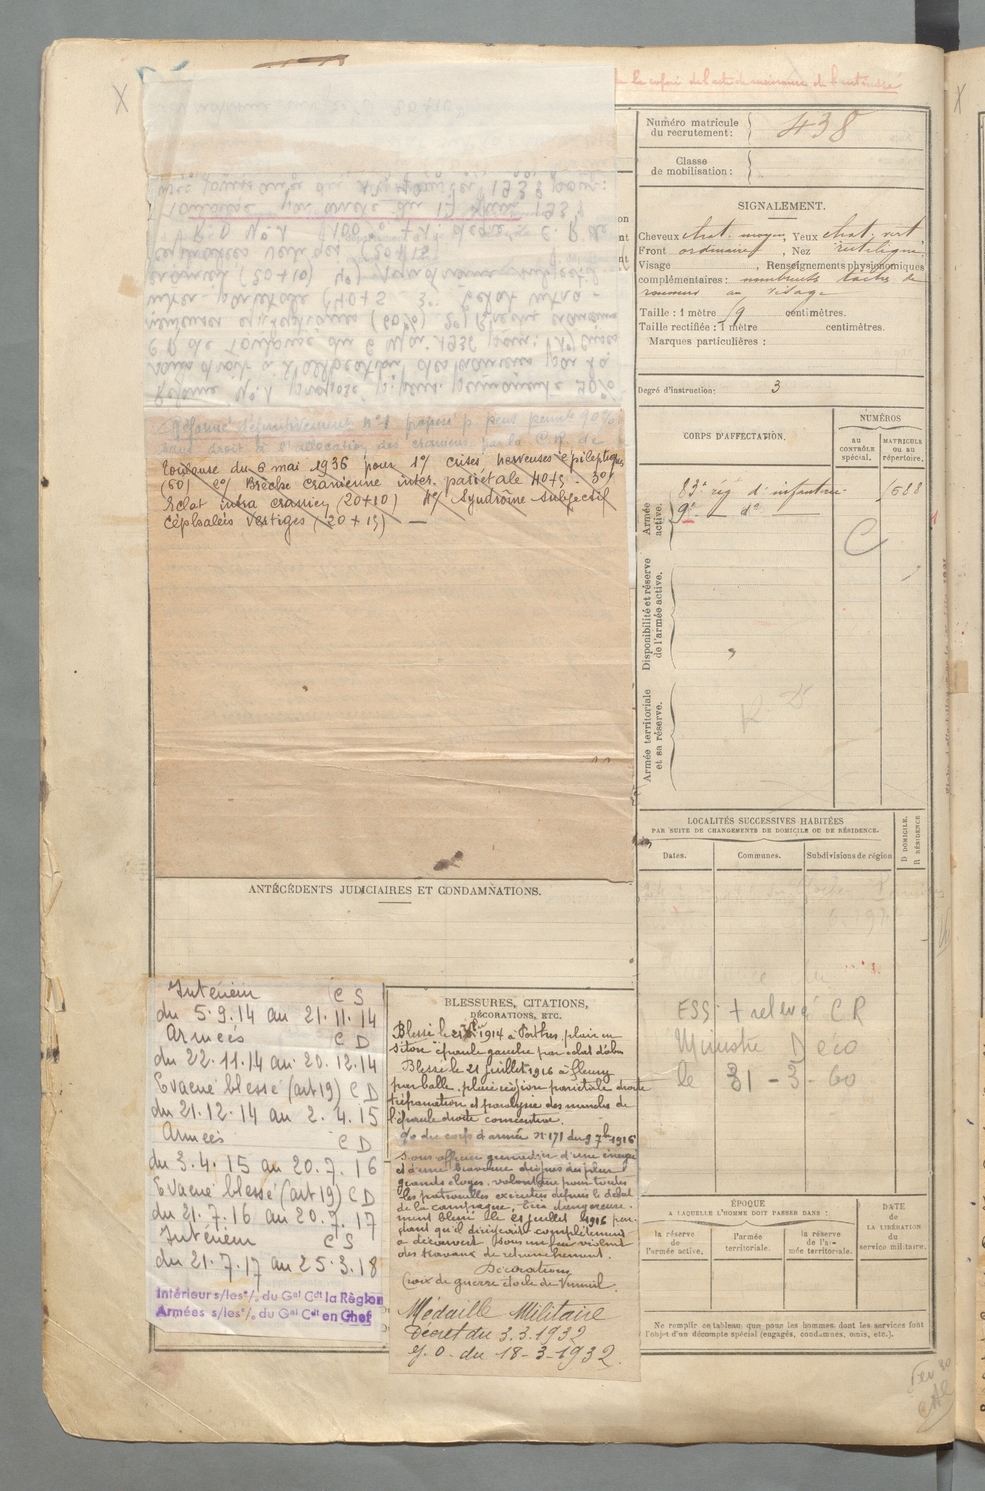 la copie de l'acte de naissance de
Numéro matricule du recrutement : 438
Classe de mobilisation :
SIGNALEMENT.
Cheveux chat. moyen, Yeux chat. vert
Front ordinaire, Nez rectiligne
Visage , Renseignements physionomiques
complémentaires : nombreuses taches de
rousseur au visage
Taille : 1 mètre 59 centimètres.
Taille rectifiée : 1 mètre centimètres.
Marques particulières :
Degré d'instruction : 3
CORPS D'AFFECTATION.
NUMÉROS
AU CONTRÔLE spécial.
MATRICULE ou au répertoire.
Armée active.
83e rég d'infanterie 1688
9e — do —
C
Disponibilité et réserve de l'armée active.
Armée territoriale et sa réserve.
LOCALITÉS SUCCESSIVES HABITÉES
PAR SUITE DE CHANGEMENTS DE DOMICILE OU DE RÉSIDENCE.
Dates.
Communes.
Subdivisions de région
D DOMICILE.
R RÉSIDENCE
ESS + relevé CR
Ministre Deco
le 31-3-60
ÉPOQUE
A LAQUELLE L'HOMME DOIT PASSER DANS :
la réserve de l'armée active.
l'armée territoriale.
la réserve de l'armée territoriale.
DATE de LA LIBÉRATION du service militaire.
Ne remplir ce tableau que pour les hommes dont les services font
l'objet d'un décompte spécial (engagés, condamnés, omis, etc.).
Réforme No 1 proposé p. pens. permanente 90%
sans droit à l'allocation des craniens par la
C R de Toulouse du 6 Mai 1936 pour : 1o) crises
nerveuses épileptiques (60%) 2o) Brèche cranienne
inter-pariétale (40+5) 3o Eclat intra-
cranien (20+10) 4o) Syndrome subjectif
céphalées vertiges (20+15)
Réformé définitivement no 1 proposé p. pens permte 90%
sans droit à l'allocation des craniens par la C.R de
Toulouse du 6 mai 1936 pour 1o/ crises nerveuses épileptiques
(60) 2o/ Brèche cranienne inter. pariétale 40+5 - 3o/
Eclat intra cranien (20+10) 4o/ Syndrome subjectif
céphalées vertiges (20+15) —
ANTÉCÉDENTS JUDICIAIRES ET CONDAMNATIONS.
Intérieur C S
du 5.9.14 au 21.11.14
Armées C D
du 22.11.14 au 20.12.14
Evacué blessé (art 19) C D
du 21.12.14 au 2.4.15
Armées C D
du 3.4.15 au 20.7.16
Evacué blessé (art 19) C D
du 21.7.16 au 20.7.17
Intérieur C S
du 21.7.17 au 25.3.18
Intérieur s/les o/ du Gal Cdt la Région
Armées s/les o/ du Gal Cdt en Chef
BLESSURES, CITATIONS,
DÉCORATIONS, ETC.
Blessé le 21 1914 à Perthes, plaie en
séton épaule gauche par éclat d'obus
Blessé le 21 juillet 1916 à Fleury
par balle, plaie région pariétale droite
trépanation et paralysie des muscles de
l'épaule droite consécutive.
o/o du corps d'armée no 171 du 9 7bre 1916
sous officier grenadier d'une énergie
et d'une bravoure dignes des plus
grands éloges, volontaire pour toutes
les patrouilles exécutées depuis le début
de la campagne, très dangereuse-
ment blessé le 21 juillet 1916 pen-
dant qu'il dirigeait complètement
à découvert sous un feu violent
des travaux de retranchement.
Décorations
Croix de guerre étoile de Vermeil.
Médaille Militaire
Décret du 3.3.1932
J.O. du 18-3-1932.